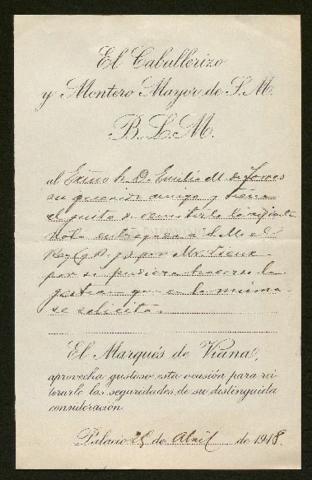 El Caballerizo
y Montero Mayor de S.M.
B. L. M.
al Excmo Sr. D. Emilio M. de Torres
su querido amigo y tiene
el gusto de remitirle la adjunta
nota entregada a S. M. el
Rey (q. D. g.) por
por si pudiera hacerse la
gestion que en la misma
se solicita.
El Marqués de Viana,
aprovecha gustoso esta ocasión para rei-
terarle las seguridades de su distinguida
consideración.
Palacio 25 de Abril de 1918.